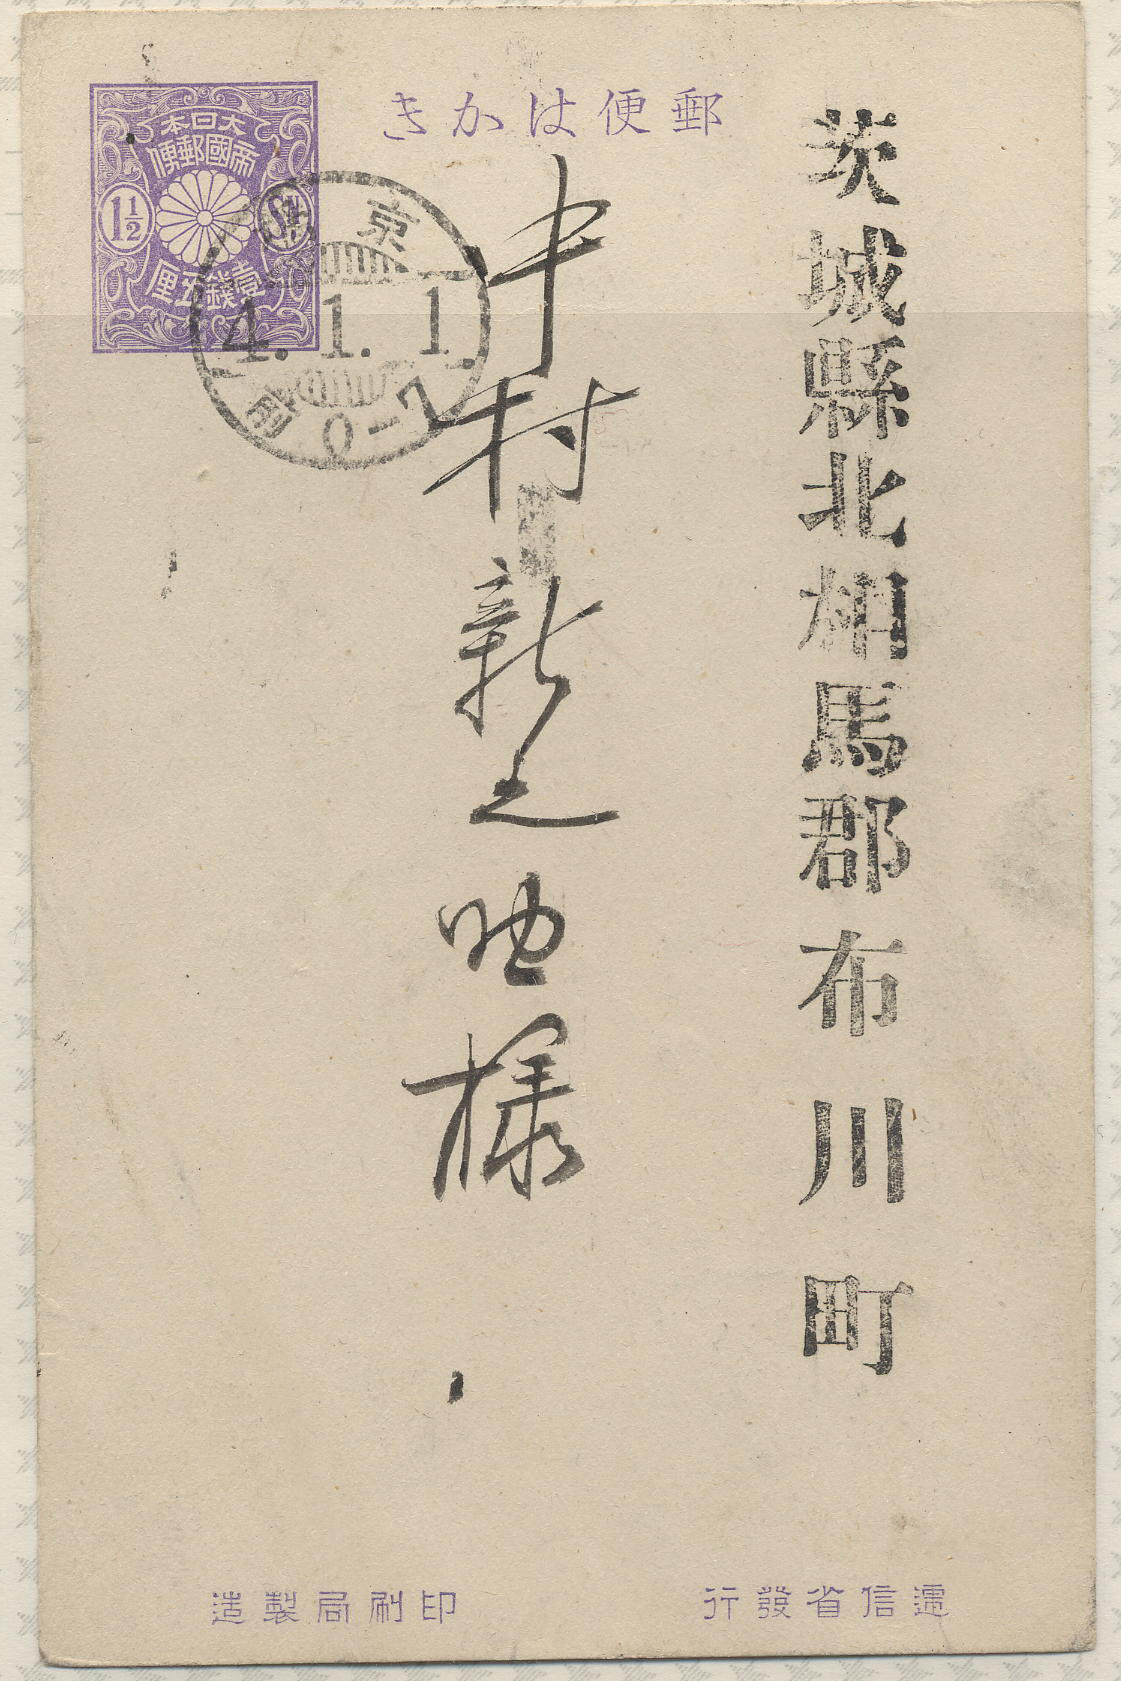 郵便はかき
大日本
帝國郵便
1½
Sn.
壹錢五厘
東京
4. 1. 1.
前0-7
茨城縣北相馬郡布川町
中村新之助様
遞信省發行
印刷局製造